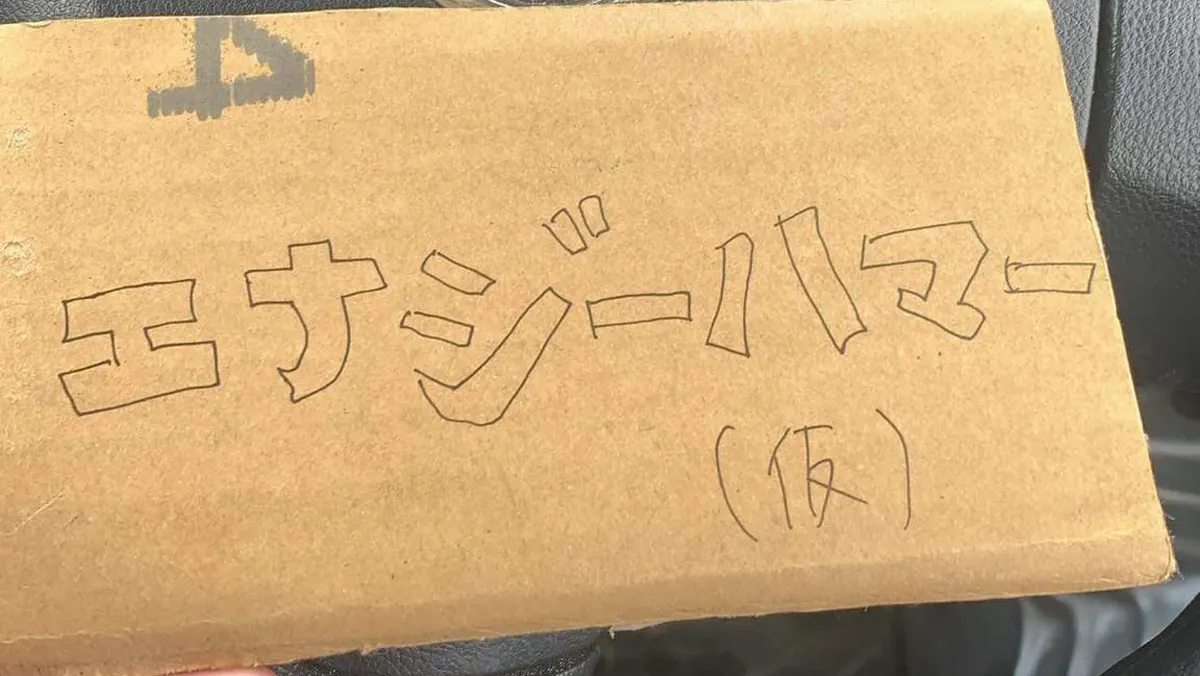 4
エナジーハマー
(仮)